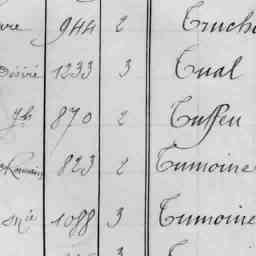 944 2 Truch
Désiré 1233 3 Tual
Jh 870 2 Tuffeu
823 2 Tumoine
Mie 1088 3 Tumoine
3